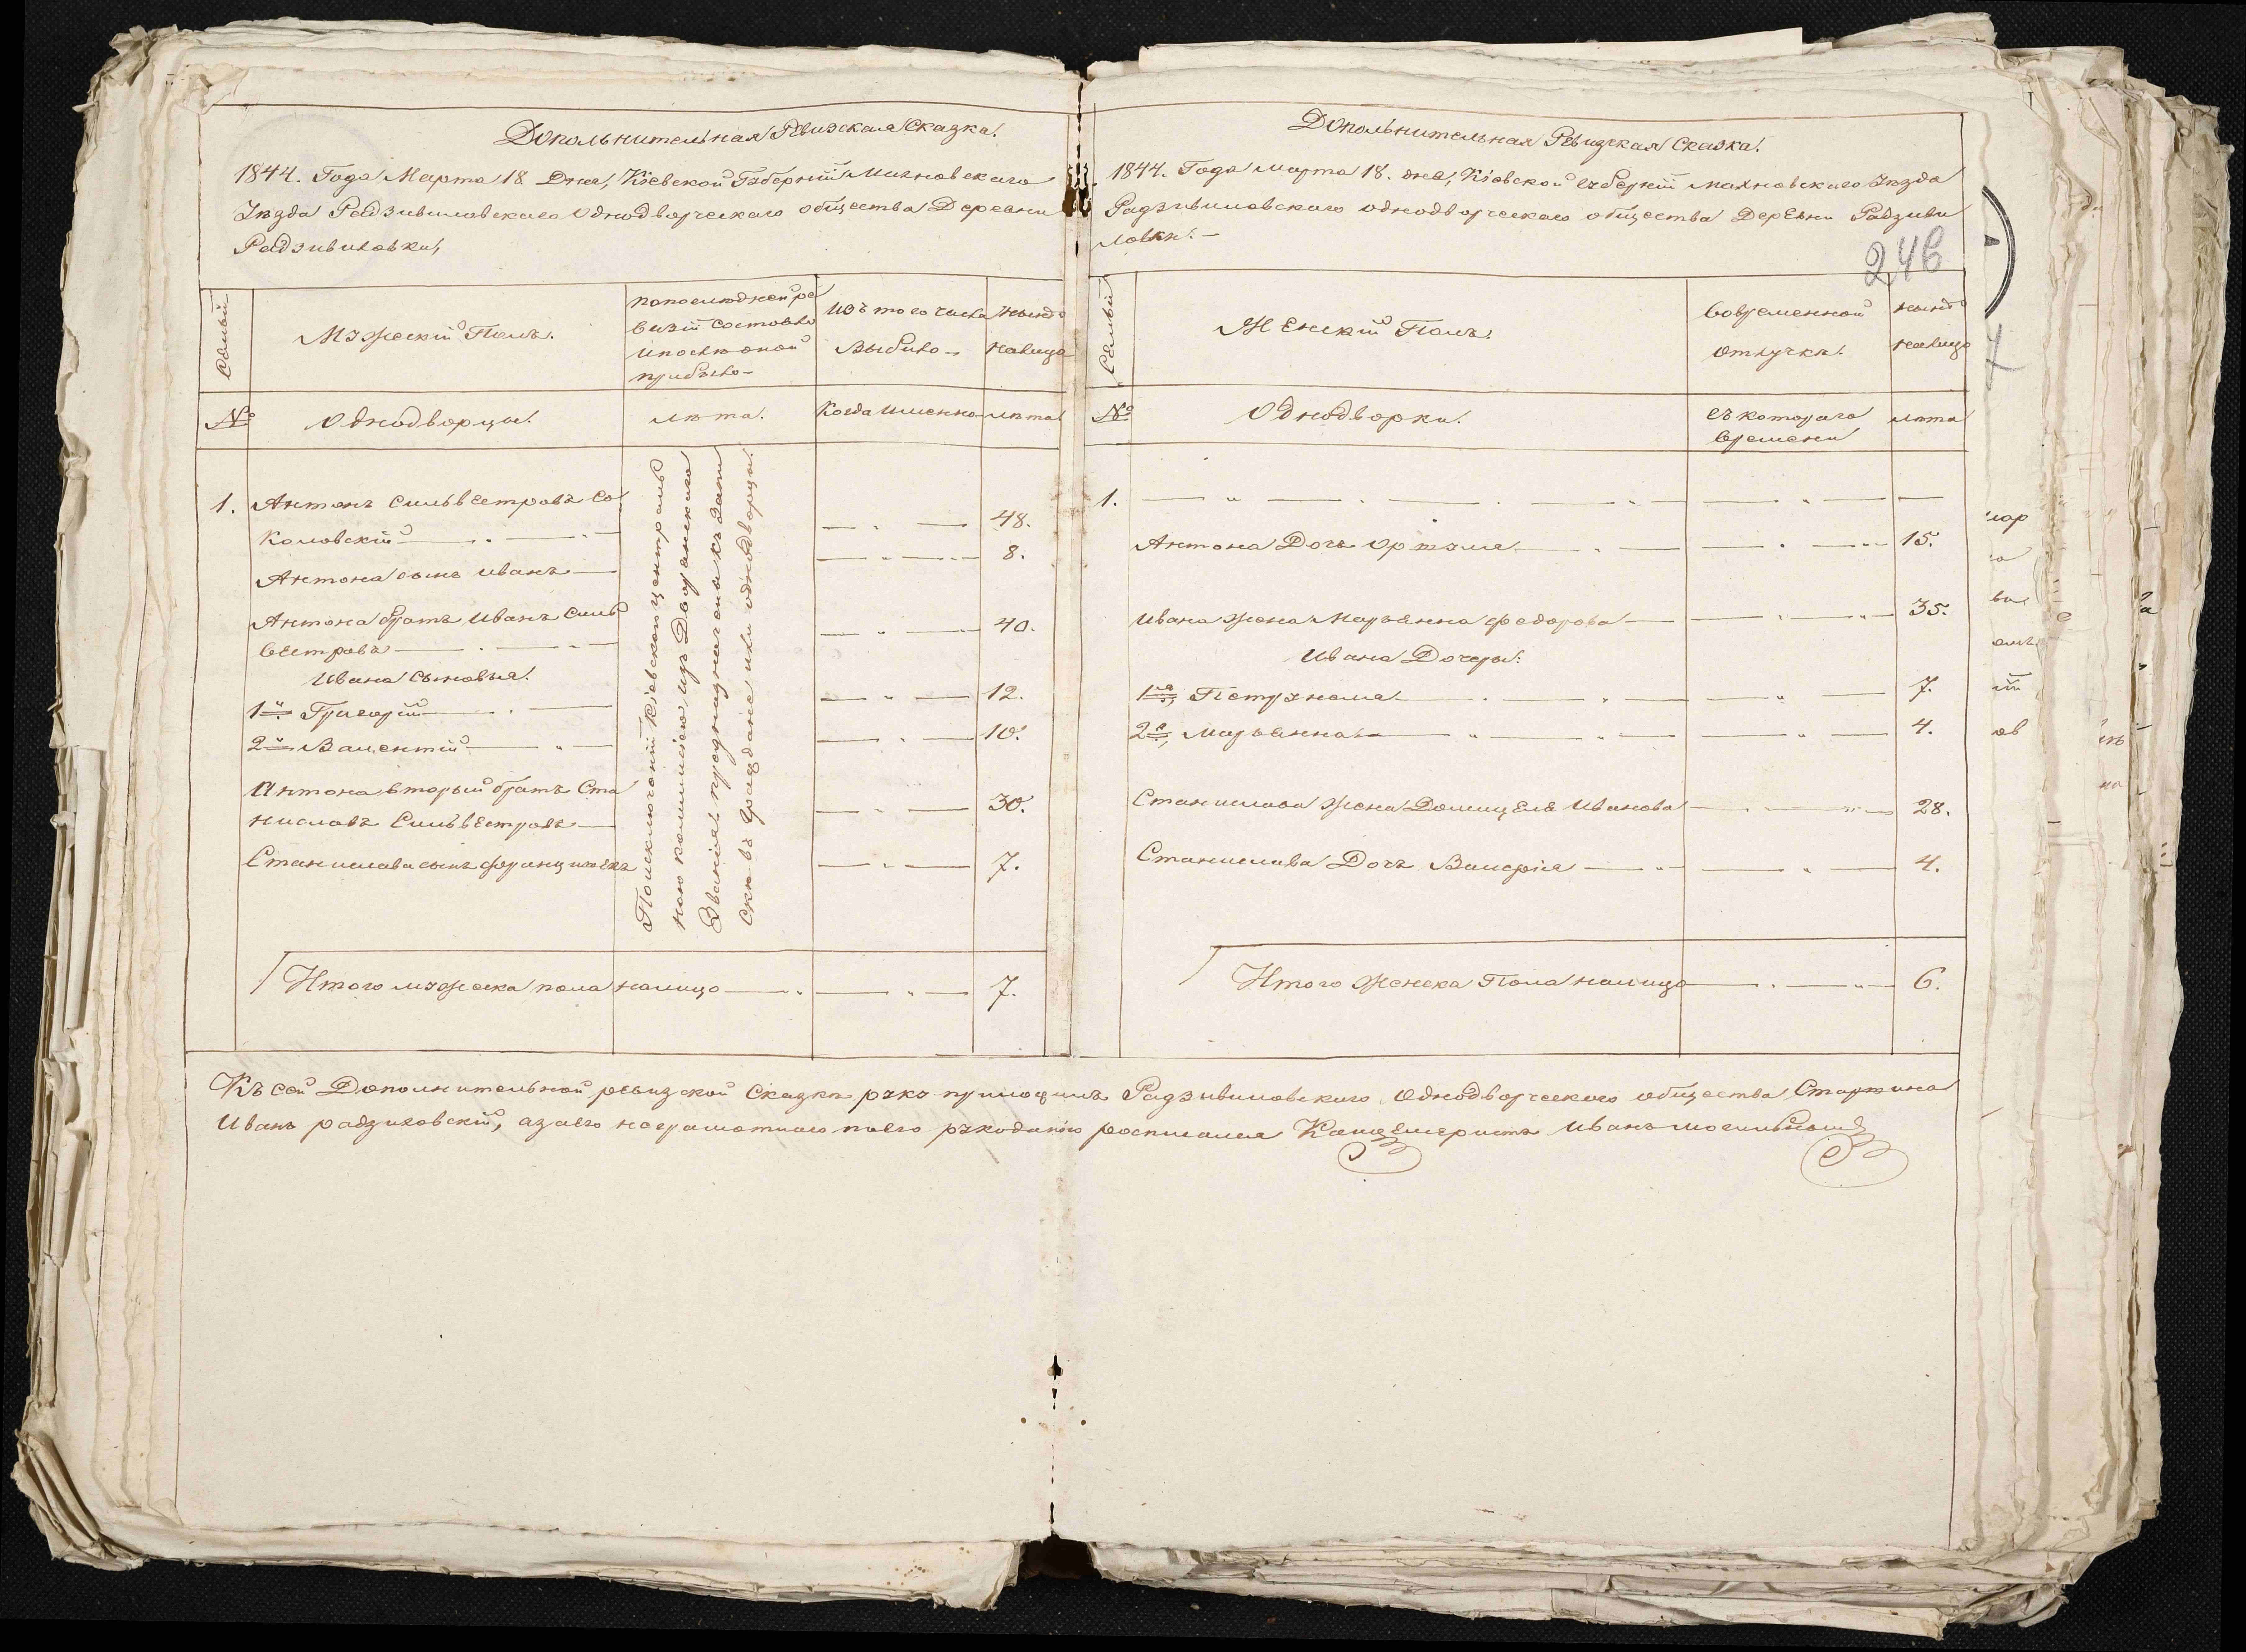 Дополнительная Ревизская Сказка.
1844. Года Марта 18 Дня, Кіевской Губерніи Махновскаго
Уѣзда Радзивиловскаго Однодворческаго общества Деревни
Радзивиловки,
Семьи
Мужескій Полъ.
По последней ре
визіи состояло
и после оной
прибыло
Изъ того числа
Выбыло
Нынѣ
налицо
№
Однодворцы.
лѣта.
Когда именно
лѣта
1. Антонъ Сильвестровъ Со
коловскій 48.
Антона сынъ Иванъ 8.
Антона братъ Иванъ Силь
вестровъ 40.
Ивана сыновья.
1й Григорій 12.
2й Валентій 10.
Антона вторый братъ Ста
ниславъ Сильвестровъ 30.
Станислава сынъ Францишекъ 7.
По исключеніи Кіевскою централь
ною коммисіею изъ Дворянскаго
Званія предназначены къ запи
ске въ граждане или однодворцы.
Итого мужеска пола налицо 7.
Дополнительная Ревизская Сказка.
1844. Года марта 18. дня, Кіевской губерніи Махновскаго Уѣзда
Радзивиловскаго однодворческаго общества Деревни Радзиви
ловки.
246
Семьи
Женскій Полъ.
Вовременной
отлучке.
Нынѣ
налицо
№
Однодворки.
съ котораго
времени
лѣта
1.
Антона Дочь 15.
Ивана жена Марьянна Федорова 35.
Ивана Дочеры:
1я Петрунеля 7.
2я, Марьянна 4.
Станислава жена Домицеля Иванова 28.
Станислава Дочь Валерія 4.
Итого Женска Пола налицо 6.
Къ сей Дополнительной ревизской Сказке руку приложилъ Радзивиловскаго Однодворческаго общества Старшина
Иванъ радзиховскій, а за его неграмотнаго по его рукоданію росписался Канцеляристъ Иванъ